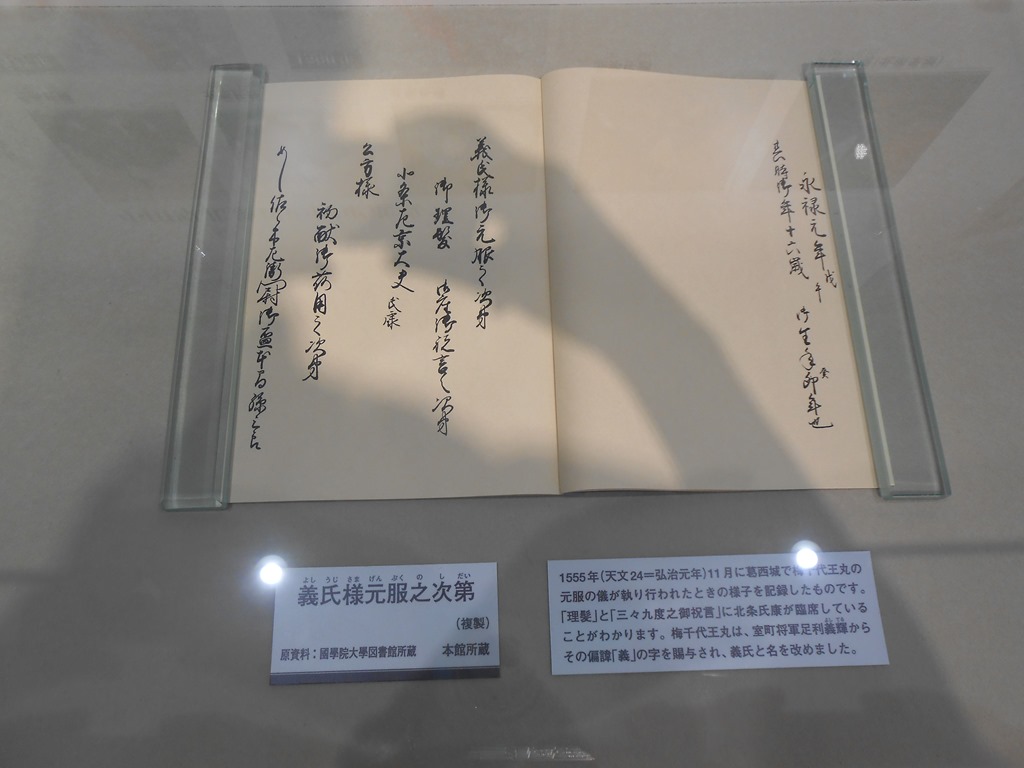 永禄元年戊午 御生年癸卯年也
御年十六歳
義氏様御元服之次第
御理髪 御祝言之次第
左京大夫 氏康
公方様
初献御荷用之次第
よしうじさまげんぷくのしだい
義氏様元服之次第
(複製)
原資料:國學院大學図書館所蔵 本館所蔵
1555年(天文24=弘治元年)11月に葛西城で梅千代王丸の
元服の儀が執り行われたときの様子を記録したものです。
「理髪」と「三々九度之御祝言」に北条氏康が臨席している
ことがわかります。梅千代王丸は、室町将軍足利義輝から
その偏諱「義」の字を賜与され、義氏と名を改めました。